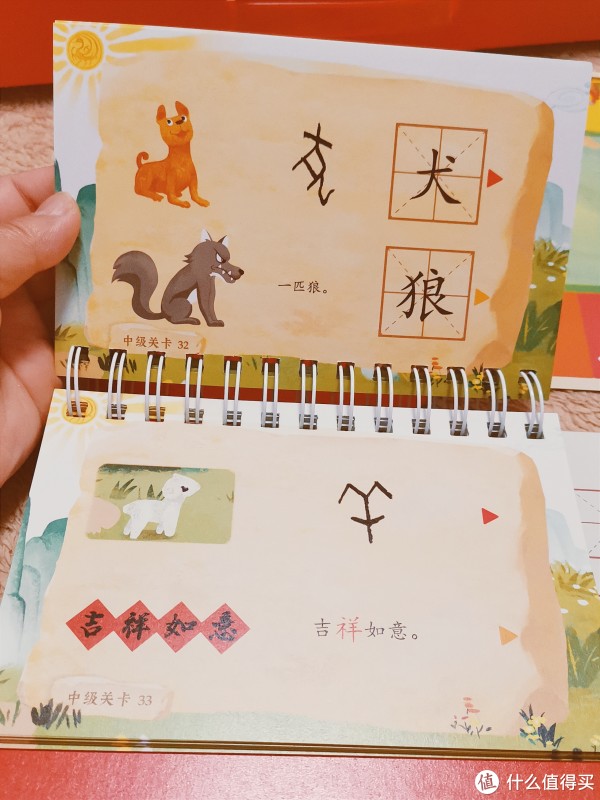 犬
一匹狼。
狼
中级关卡 32
吉祥如意
吉祥如意。
中级关卡 33
值 什么值得买